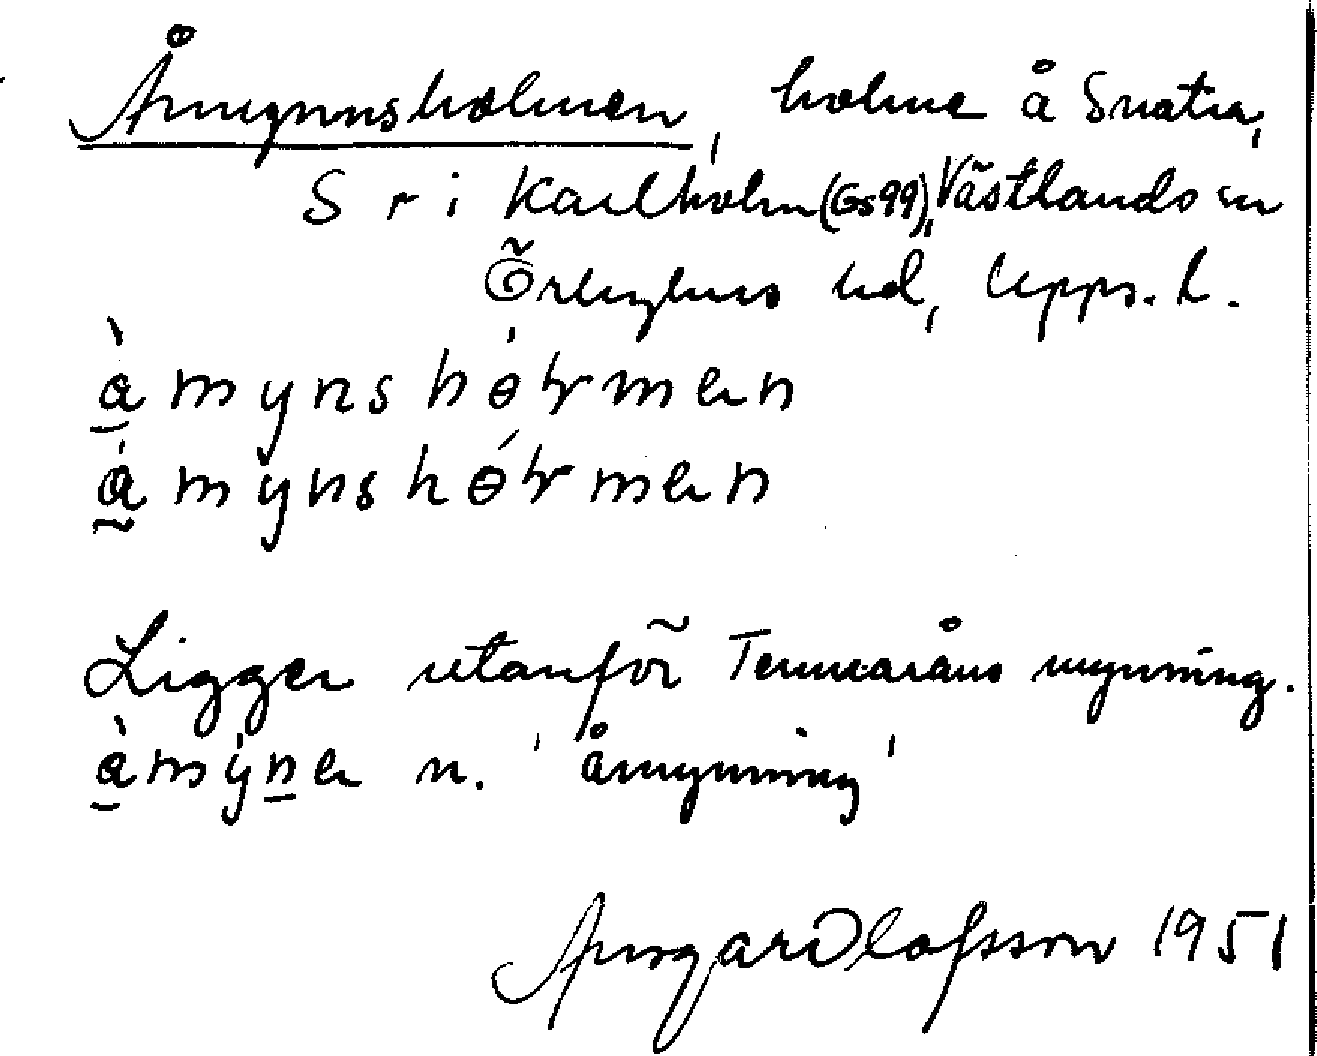 Åmynnsholmen, holme å Snatra,
S r i Karlholm (Gs 99), Västlands sn
Örbyhus hd, Upps. L.
àmynshótmen
ámynshótmen
Ligger utanför Temmaråns mynning.
àmýnen n. 'åmynning'
Ansgar Olofsson 1951